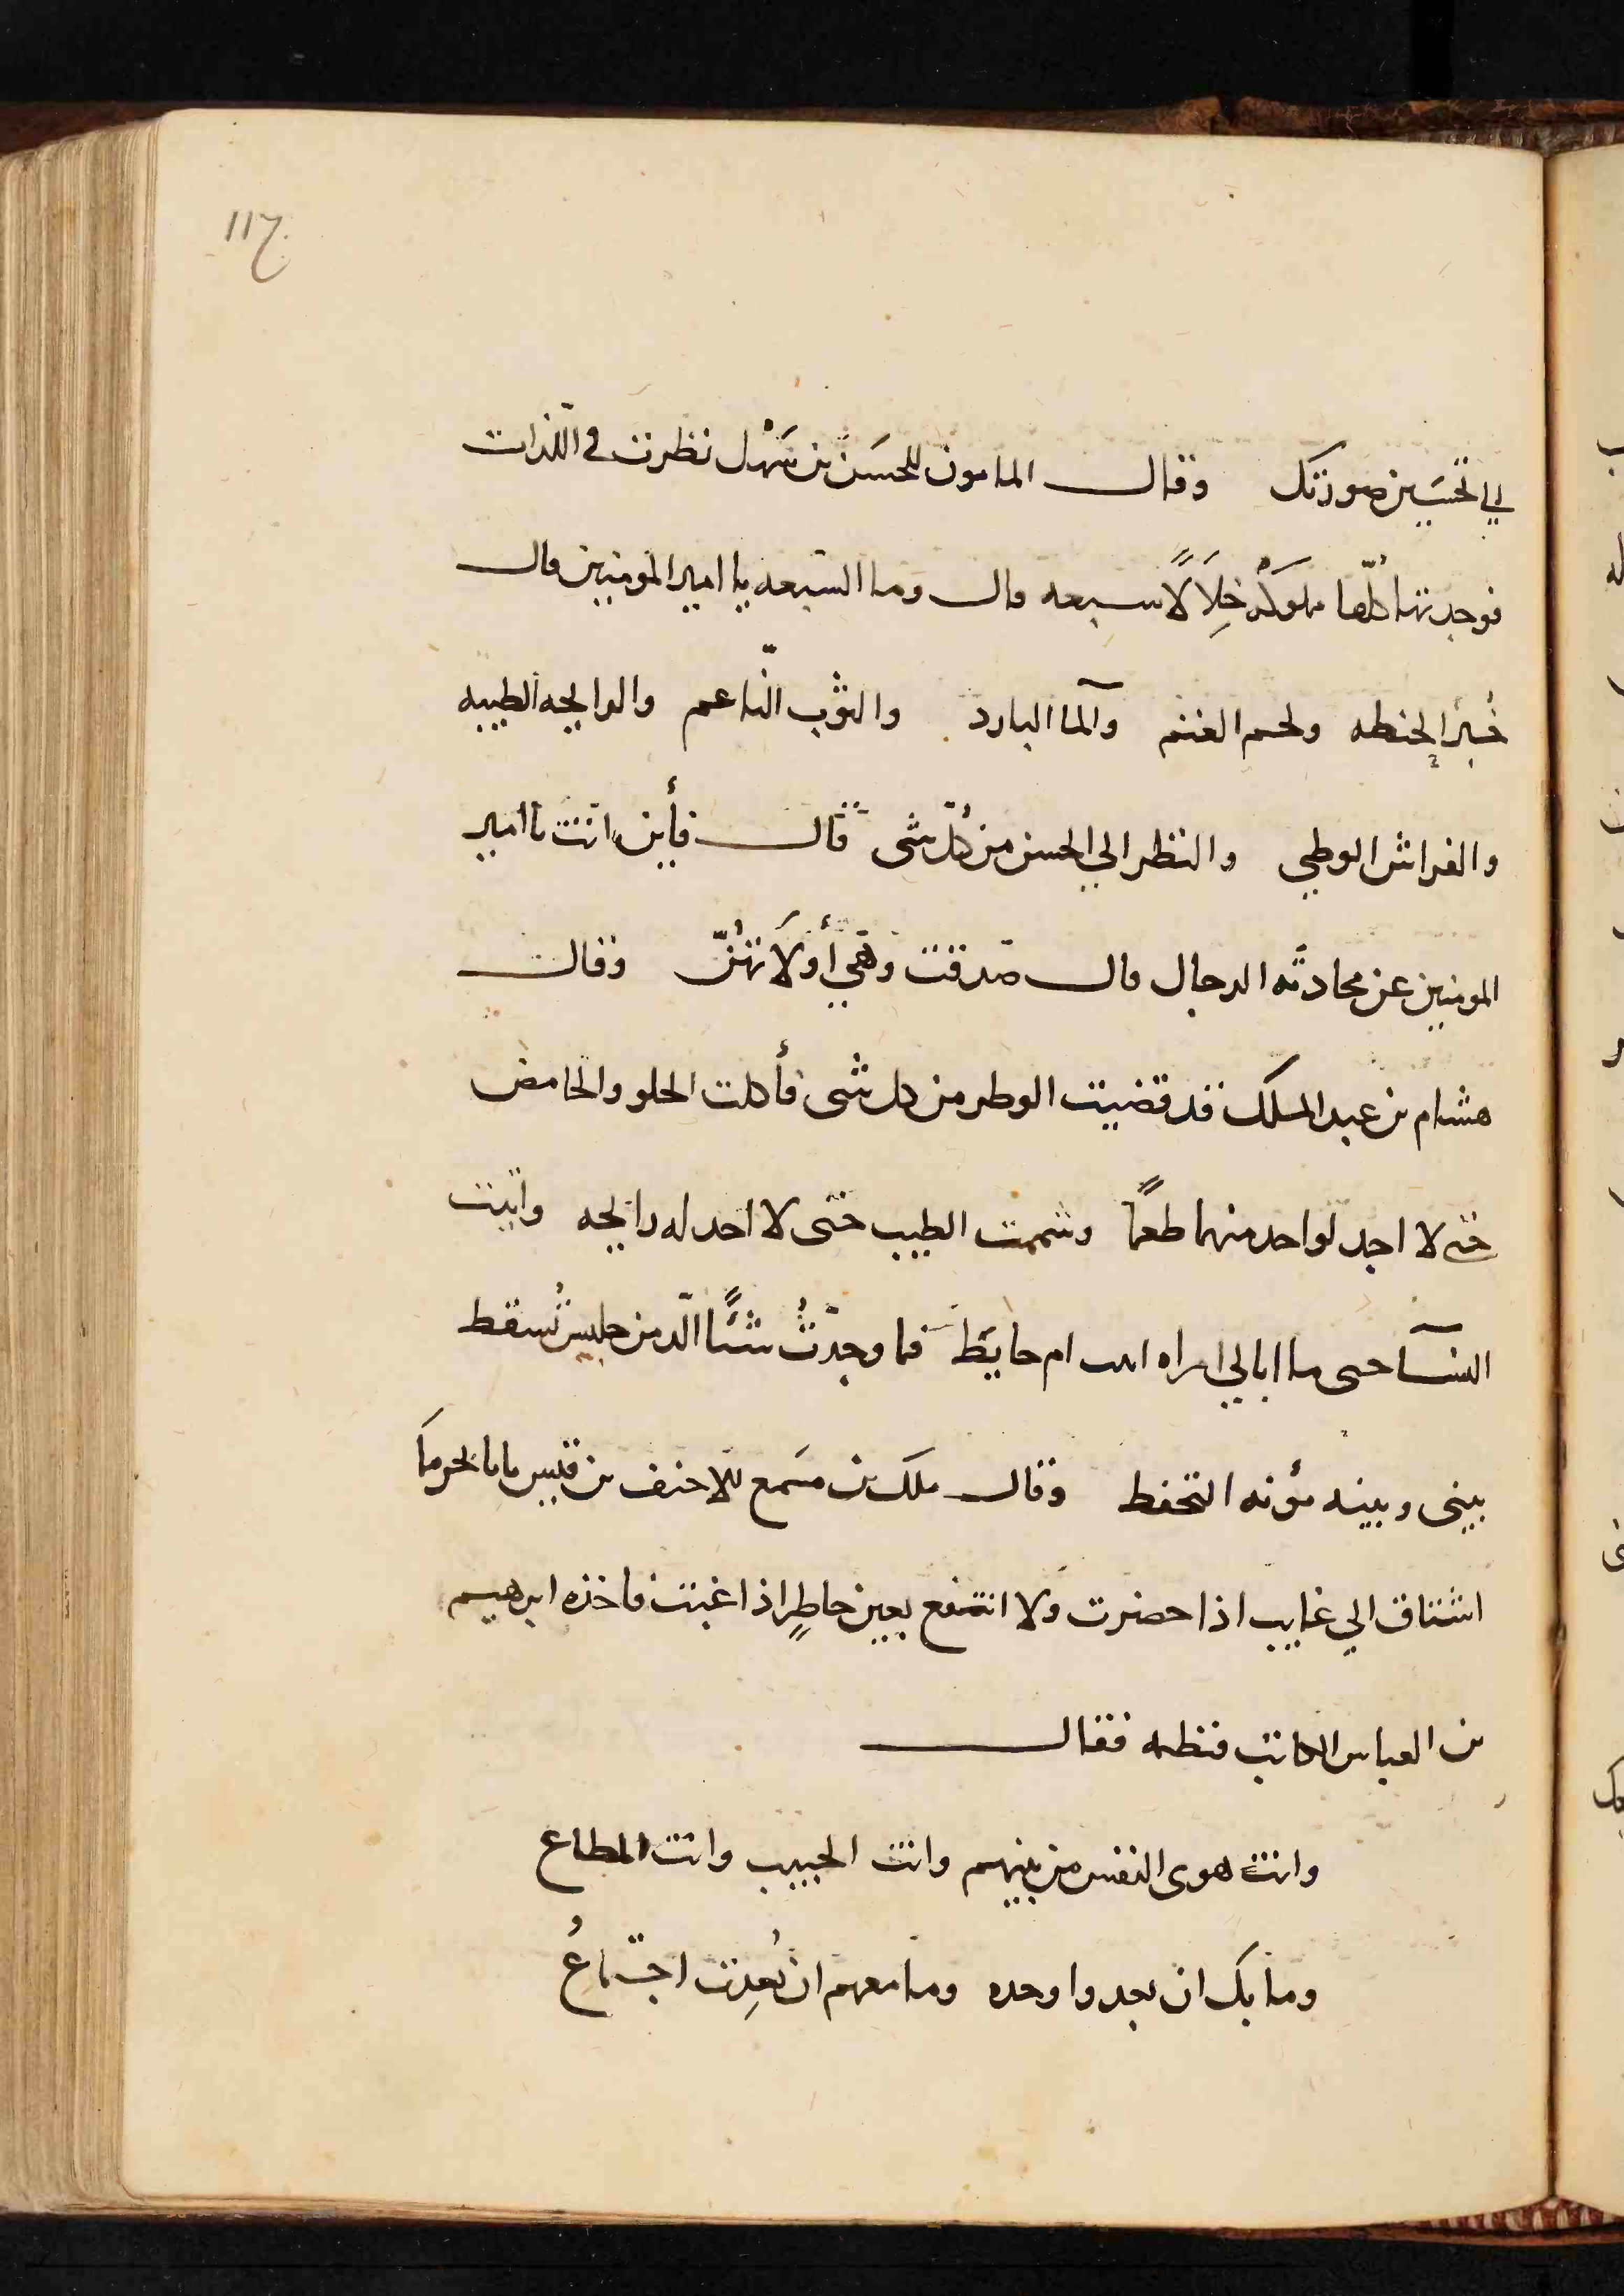 117
لي تحسين صورتك وقال المامون للحسَن بن سَهْل نظرت في اللّذات
فوجدتها كلّها مملوكَةْ خِلَالًا سبعه قال وما السبعه يا امير المومنين قال
خُبز الحنطه ولحم الغنم والمآ البارد والثوب النّاعم والرايحه الطيبه
والفراش الوطي والنظر الي الحسن من كلّ شى قال فأين انت يا امير
المومنين عن محادثه الرجال قال صدقت وهي أولَاهُنّ وقال
هشام بن عبد الملك قد قضيت الوطر من كل شى فأكلت الحلو والحامض
حتى لا اجد لواحد منهما طعمًا وشممت الطيب حتى لا اجد له رايحه واتيت
النسآ حتى ما ابالي امراه اتيت ام حايط فما وجدْتُ شئًا الّذ من جليس تُسقط
بيني وبينه مؤنه التحفظ وقال ملك بن مسَمع للاحنف بن قيس يابا بحر ما
اشتاق الي غايب اذا حضرت ولا انتفع بعين حاطٍر اذا غبت فاخذه ابرهيم
بن العباس الكاتب فنظمه فقال
وانت هوى النفس من بينهم وانت الحبيب وانت المطاع
وما بك ان بعدوا وحده وما معهم ان بُعِدت اجتماعُ